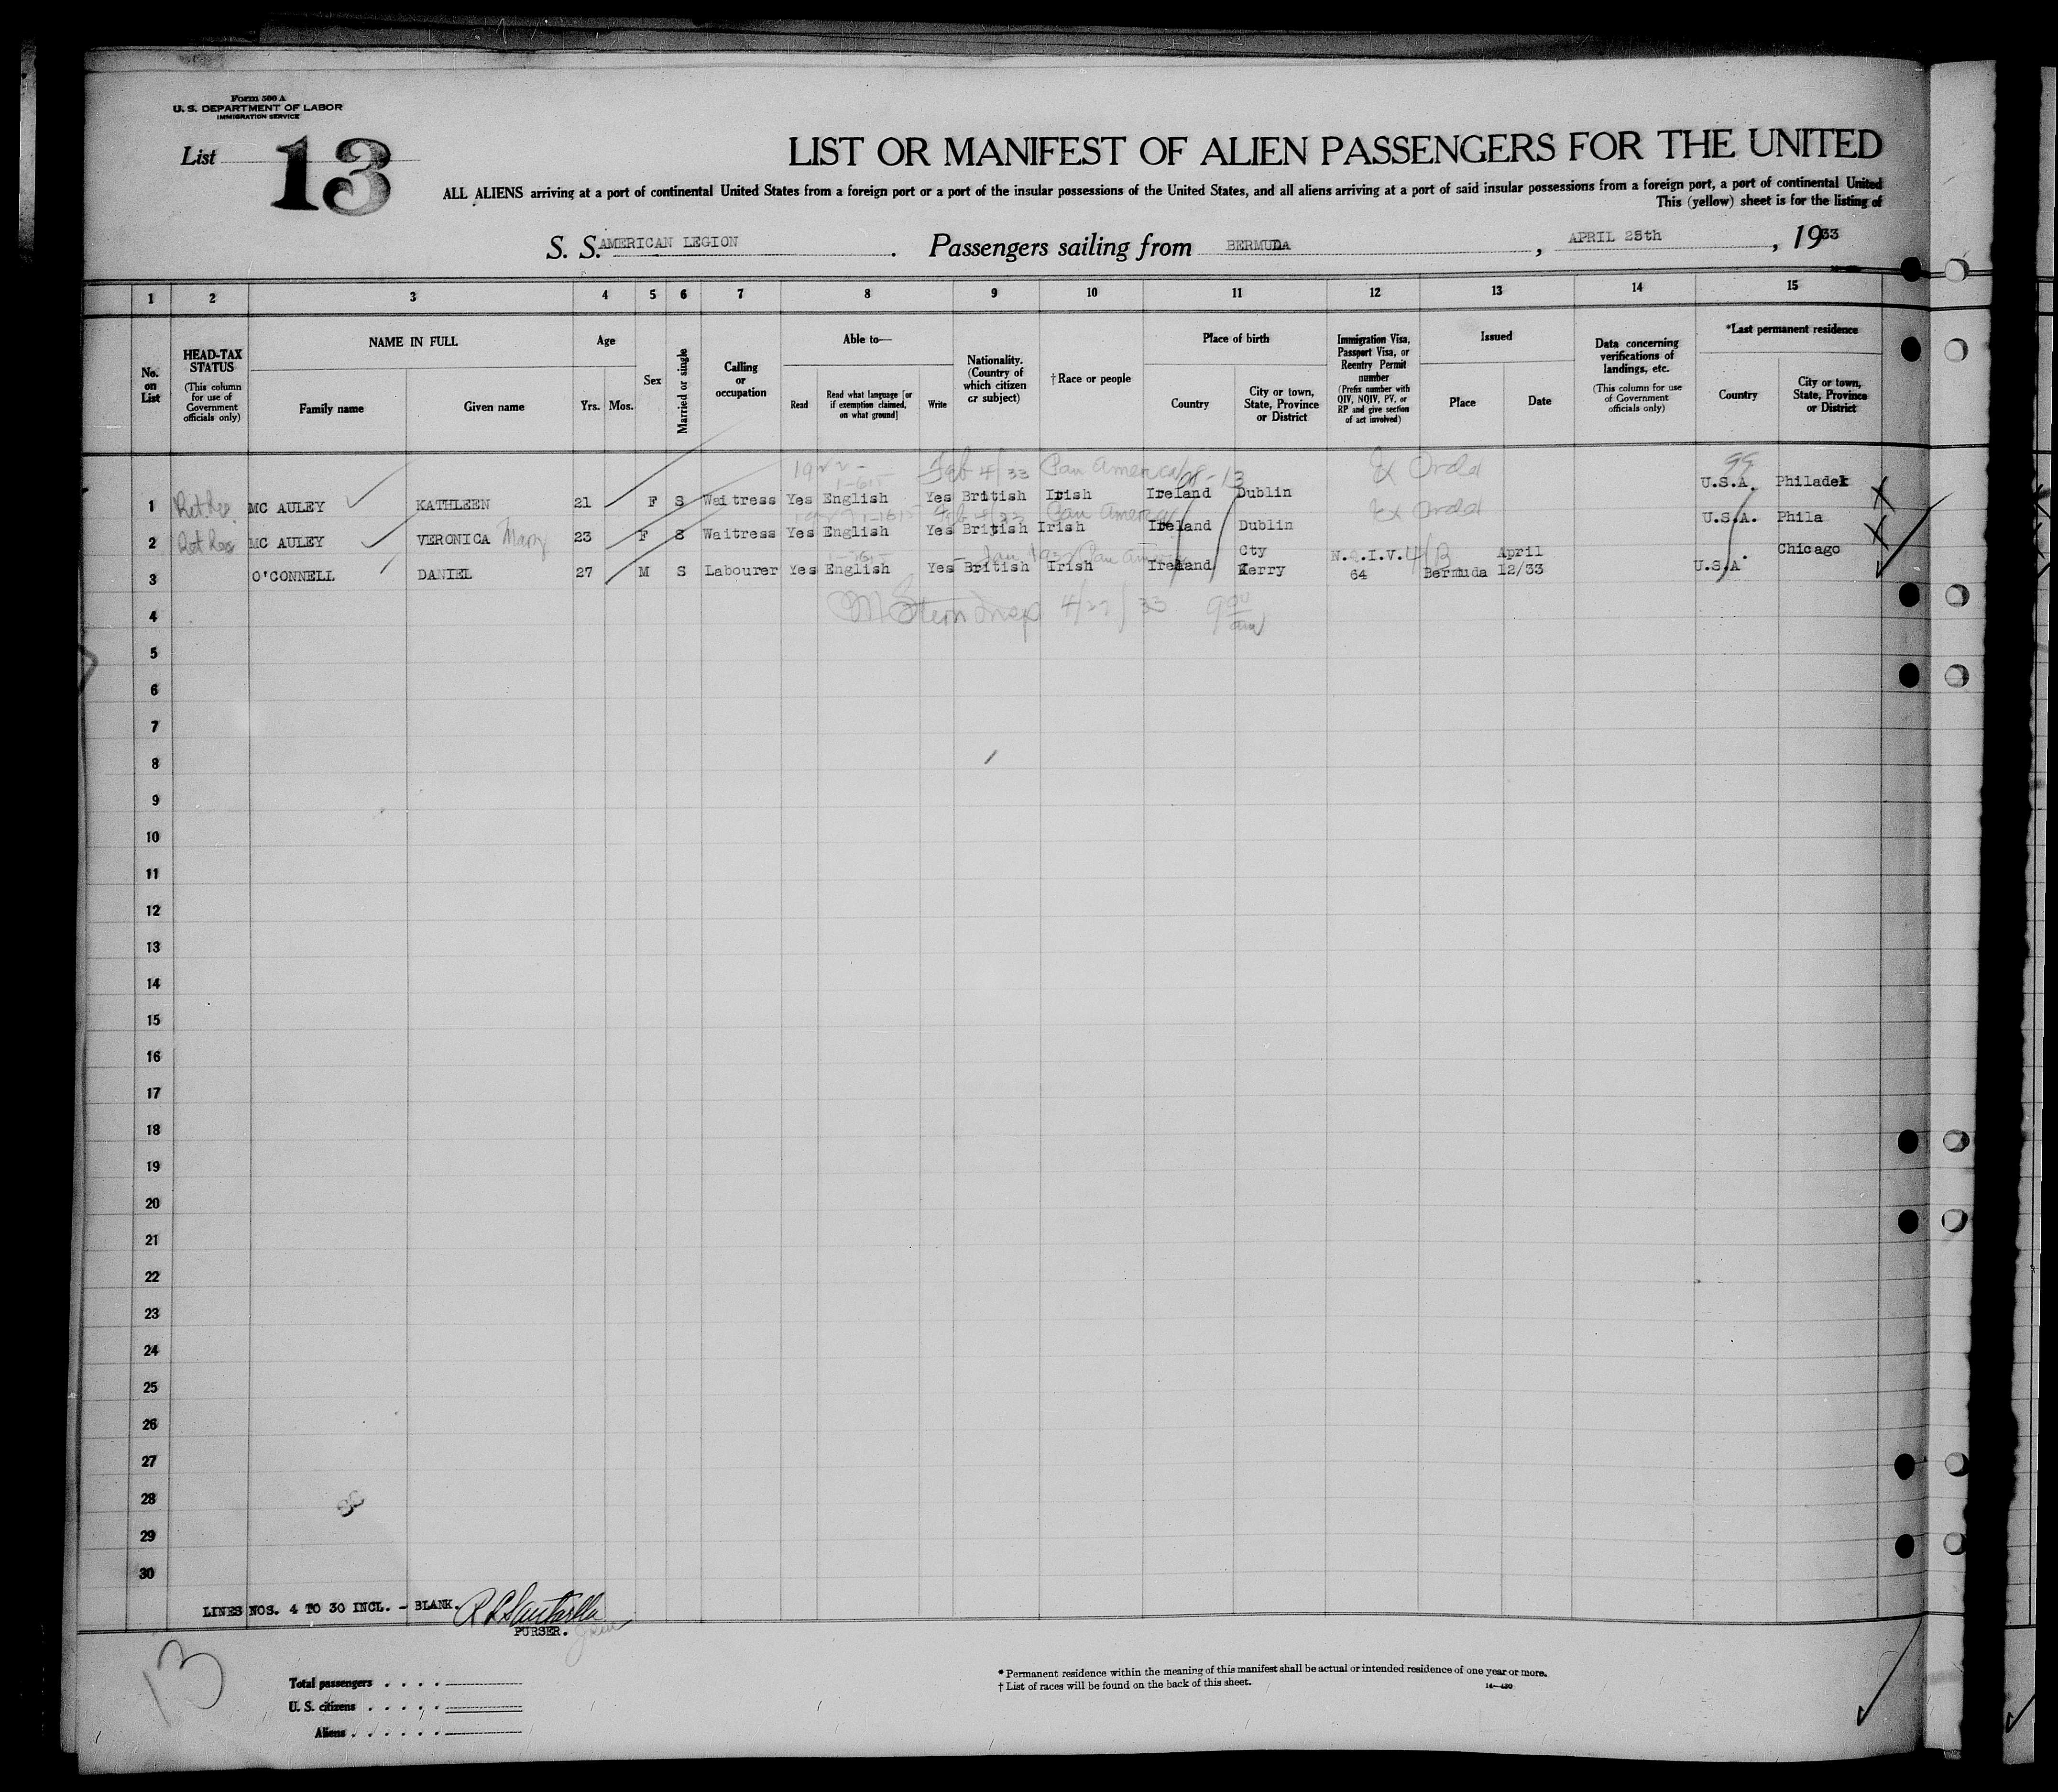 Form 500 A
U. S. DEPARTMENT OF LABOR
IMMIGRATION SERVICE
List 13
LIST OR MANIFEST OF ALIEN PASSENGERS FOR THE UNITED
ALL ALIENS arriving at a port of continental United States from a foreign port or a port of the insular possessions of the United States, and all aliens arriving at a port of said insular possessions from a foreign port, a port of continental United
This (yellow) sheet is for the listing of
S. S. AMERICAN LEGION . Passengers sailing from BERMUDA , APRIL 28th , 1933
1 2 3 4 5 6 7 8 9 10 11 12 13 14 15
No. on List
HEAD-TAX STATUS (This column for use of Government officials only)
NAME IN FULL
Family name Given name
Age
Yrs. Mos.
Sex
Married or single
Calling or occupation
Able to—
Read Read what language [or if exemption claimed, on what ground] Write
Nationality. (Country of which citizen or subject)
†Race or people
Place of birth
Country City or town, State, Province or District
Immigration Visa, Passport Visa, or Reentry Permit number (Prefix number with QIV, NQIV, PV, or RP and give section of act involved)
Issued
Place Date
Data concerning verifications of landings, etc. (This column for use of Government officials only)
*Last permanent residence
Country City or town, State, Province or District
Feb 4/33 Pan America
1 MC AULEY KATHLEEN 21 F S Waitress Yes English Yes British Irish Ireland Dublin U.S.A. Philadel
Pan America
2 MC AULEY VERONICA Mary 23 F S Waitress Yes English Yes British Irish Ireland Dublin U.S.A. Phila
Cty N. .I.V. April Chicago
3 O'CONNELL DANIEL 27 M S Labourer Yes English Yes British Irish Ireland Kerry 64 Bermuda 12/33 U.S.A.
M Stern Insp 4/29/33 9 00 am
4
5
6
7
8
9
10
11
12
13
14
15
16
17
18
19
20
21
22
23
24
25
26
27
28
29
30
LINES NOS. 4 TO 30 INCL. - BLANK.
PURSER.
13
Total passengers . . . .
U. S. citizens . . . . .
Aliens . . . . . .
* Permanent residence within the meaning of this manifest shall be actual or intended residence of one year or more.
† List of races will be found on the back of this sheet.
14—430